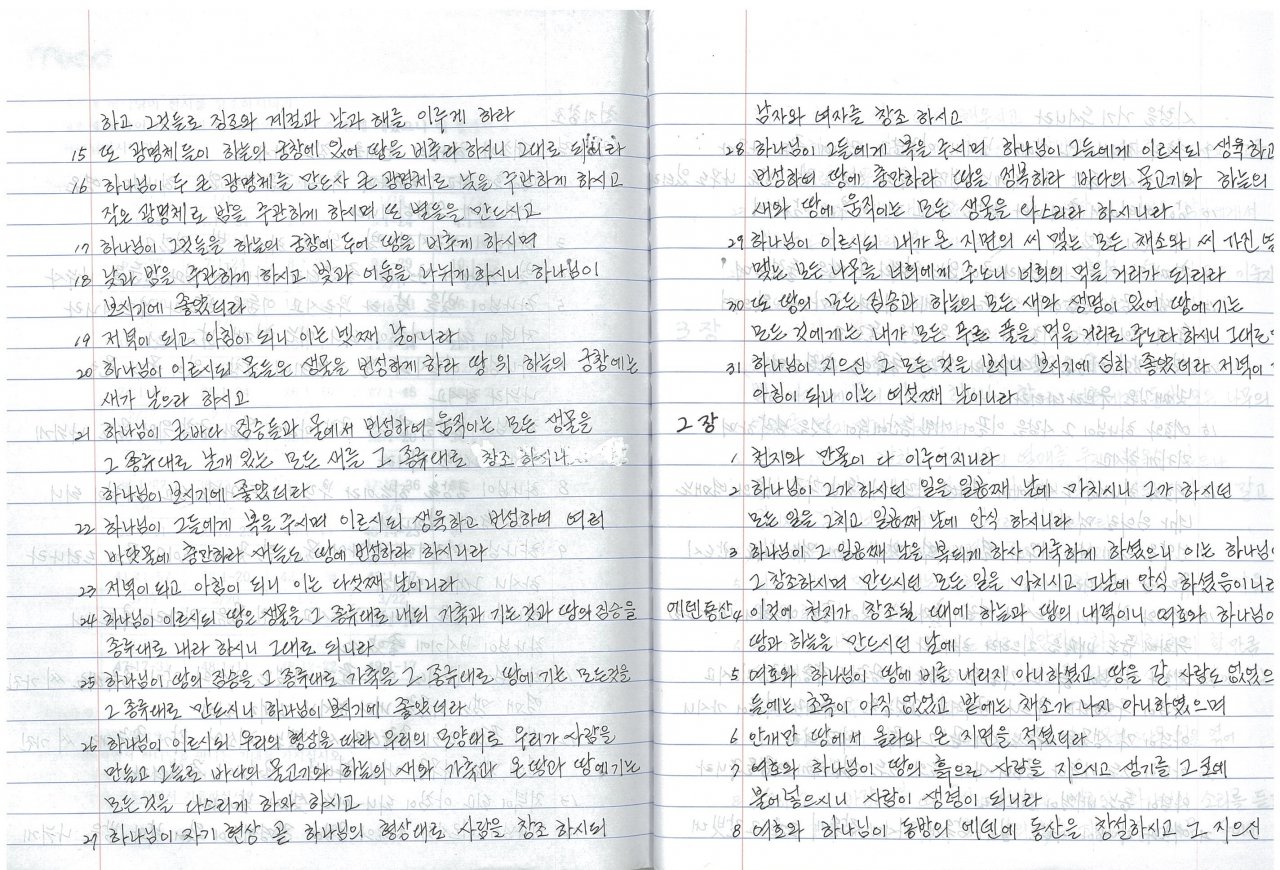 하고 그것들로 징조와 계절과 날과 해를 이루게 하라
15 또 광명체들이 하늘의 궁창에 있어 땅을 비추라 하시니 그대로 되니라
16 하나님이 두 큰 광명체를 만드사 큰 광명체로 낮을 주관하게 하시고
작은 광명체로 밤을 주관하게 하시며 또 별들을 만드시고
17 하나님이 그것들을 하늘의 궁창에 두어 땅을 비추게 하시며
18 낮과 밤을 주관하게 하시고 빛과 어둠을 나뉘게 하시니 하나님이
보시기에 좋았더라
19 저녁이 되고 아침이 되니 이는 넷째 날이니라
20 하나님이 이르시되 물들은 생물을 번성하게 하라 땅 위 하늘의 궁창에는
새가 날으라 하시고
21 하나님이 큰바다 짐승들과 물에서 번성하여 움직이는 모든 생물을
그 종류대로 날개 있는 모든 새를 그 종류대로 창조 하시니
하나님이 보시기에 좋았더라
22 하나님이 그들에게 복을 주시며 이르시되 생육하고 번성하여 여러
바닷물에 충만하라 새들도 땅에 번성하라 하시니라
23 저녁이 되고 아침이 되니 이는 다섯째 날이니라
24 하나님이 이르시되 땅은 생물을 그 종류대로 내되 가축과 기는것과 땅의 짐승을
종류대로 내라 하시니 그대로 되니라
25 하나님이 땅의 짐승을 그 종류대로 가축을 그 종류대로 땅에 기는 모든것을
그 종류대로 만드시니 하나님이 보시기에 좋았더라
26 하나님이 이르시되 우리의 형상을 따라 우리의 모양대로 우리가 사람을
만들고 그들로 바다의 물고기와 하늘의 새와 가축과 온 땅과 땅에 기는
모든 것을 다스리게 하자 하시고
27 하나님이 자기 형상 곧 하나님의 형상대로 사람을 창조 하시되
남자와 여자를 창조 하시고
28 하나님이 그들에게 복을 주시며 하나님이 그들에게 이르시되 생육하고
번성하여 땅에 충만하라 땅을 정복하라 바다의 물고기와 하늘의
새와 땅에 움직이는 모든 생물을 다스리라 하시니라
29 하나님이 이르시되 내가 온 지면의 씨 맺는 모든 채소와 씨 가진 열
맺는 모든 나무를 너희에게 주노니 너희의 먹을 거리가 되리라
30 또 땅의 모든 짐승과 하늘의 모든 새와 생명이 있어 땅에 기는
모든 것에게는 내가 모든 푸른 풀을 먹을 거리로 주노라 하시니 그대로
31 하나님이 지으신 그 모든 것을 보시니 보시기에 심히 좋았더라 저녁이
아침이 되니 이는 여섯째 날이니라
2 장
1 천지와 만물이 다 이루어지니라
2 하나님이 그가 하시던 일을 일곱째 날에 마치시니 그가 하시던
모든 일을 그치고 일곱째 날에 안식 하시니라
3 하나님이 그 일곱째 날을 복되게 하사 거룩하게 하셨으니 이는 하나님
그 창조하시며 만드시던 모든 일을 마치시고 그날에 안식 하셨음이니라
에덴 동산 4 이것에 천지가 창조될 때에 하늘과 땅의 내력이니 여호와 하나님이
땅과 하늘을 만드시던 날에
5 여호와 하나님이 땅에 비를 내리지 아니하셨고 땅을 갈 사람도 없었으
들에는 초목이 아직 없었고 밭에는 채소가 나지 아니하였으며
6 안개만 땅에서 올라와 온 지면을 적셨더라
7 여호와 하나님이 땅의 흙으로 사람을 지으시고 생기를 그 코에
불어넣으시니 사람이 생령이 되니라
8 여호와 하나님이 동방의 에덴에 동산을 창설하시고 그 지으신